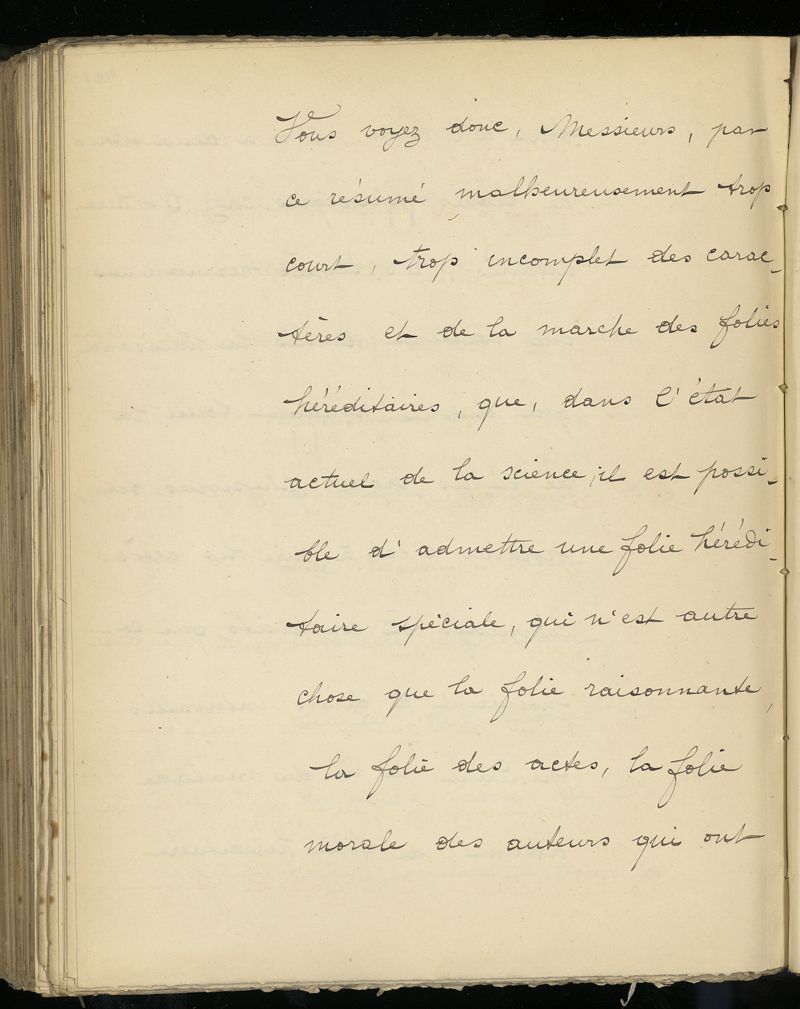 Vous voyez donc, Messieurs, par
ce résumé malheureusement trop
court, trop incomplet des carac-
tères et de la marche des folies
héréditaires, que, dans l'état
actuel de la science, il est possi-
ble d'admettre une folie hérédi-
taire spéciale, qui n'est autre
chose que la folie raisonnante,
la folie des actes, la folie
morale des auteurs qui ont